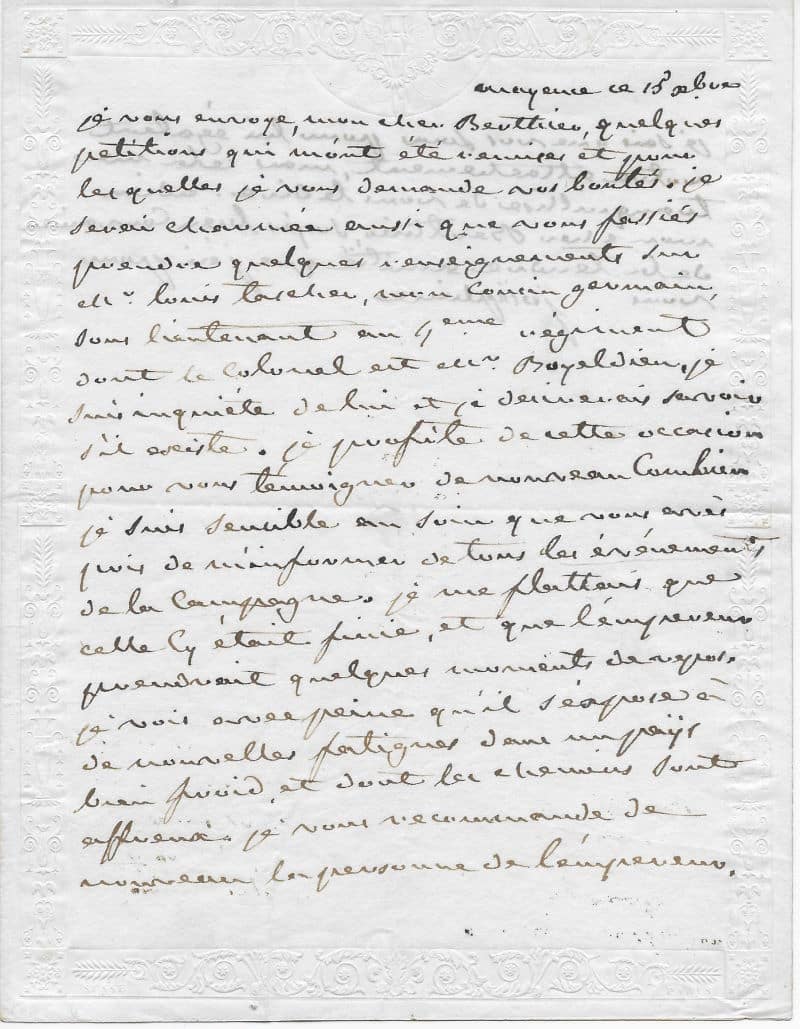 mayence ce 15 xbre
je vous envoye, mon cher Berthier, quelques
petitions qui m'ont été remises et pour
lesquelles je vous demande vos bontés. je
serai charmée aussi que vous fassiés
prendre quelques renseignements sur
Mr. louis tascher, mon Cousin germain,
sous lieutenant au 4eme régiment
dont le Colonel est Mr. Boyeldieu, je
suis inquiète de lui et je desirerais savoir
s'il existe. je profite de cette occasion
pour vous témoigner de nouveau Combien
je suis sensible au soin que vous avés
pris de m'informer de tous les événements
de la Campagne. je me flattais que
celle Cy était finie, et que l'émpereur
prendrait quelques moments de repos.
je vois avec peine qu'il s'éxpose à
de nouvelles fatigues dans un païs
bien froid, et dont les chemins sont
affreux. je vous recommande de
nouveau la personne de l'émpereur.